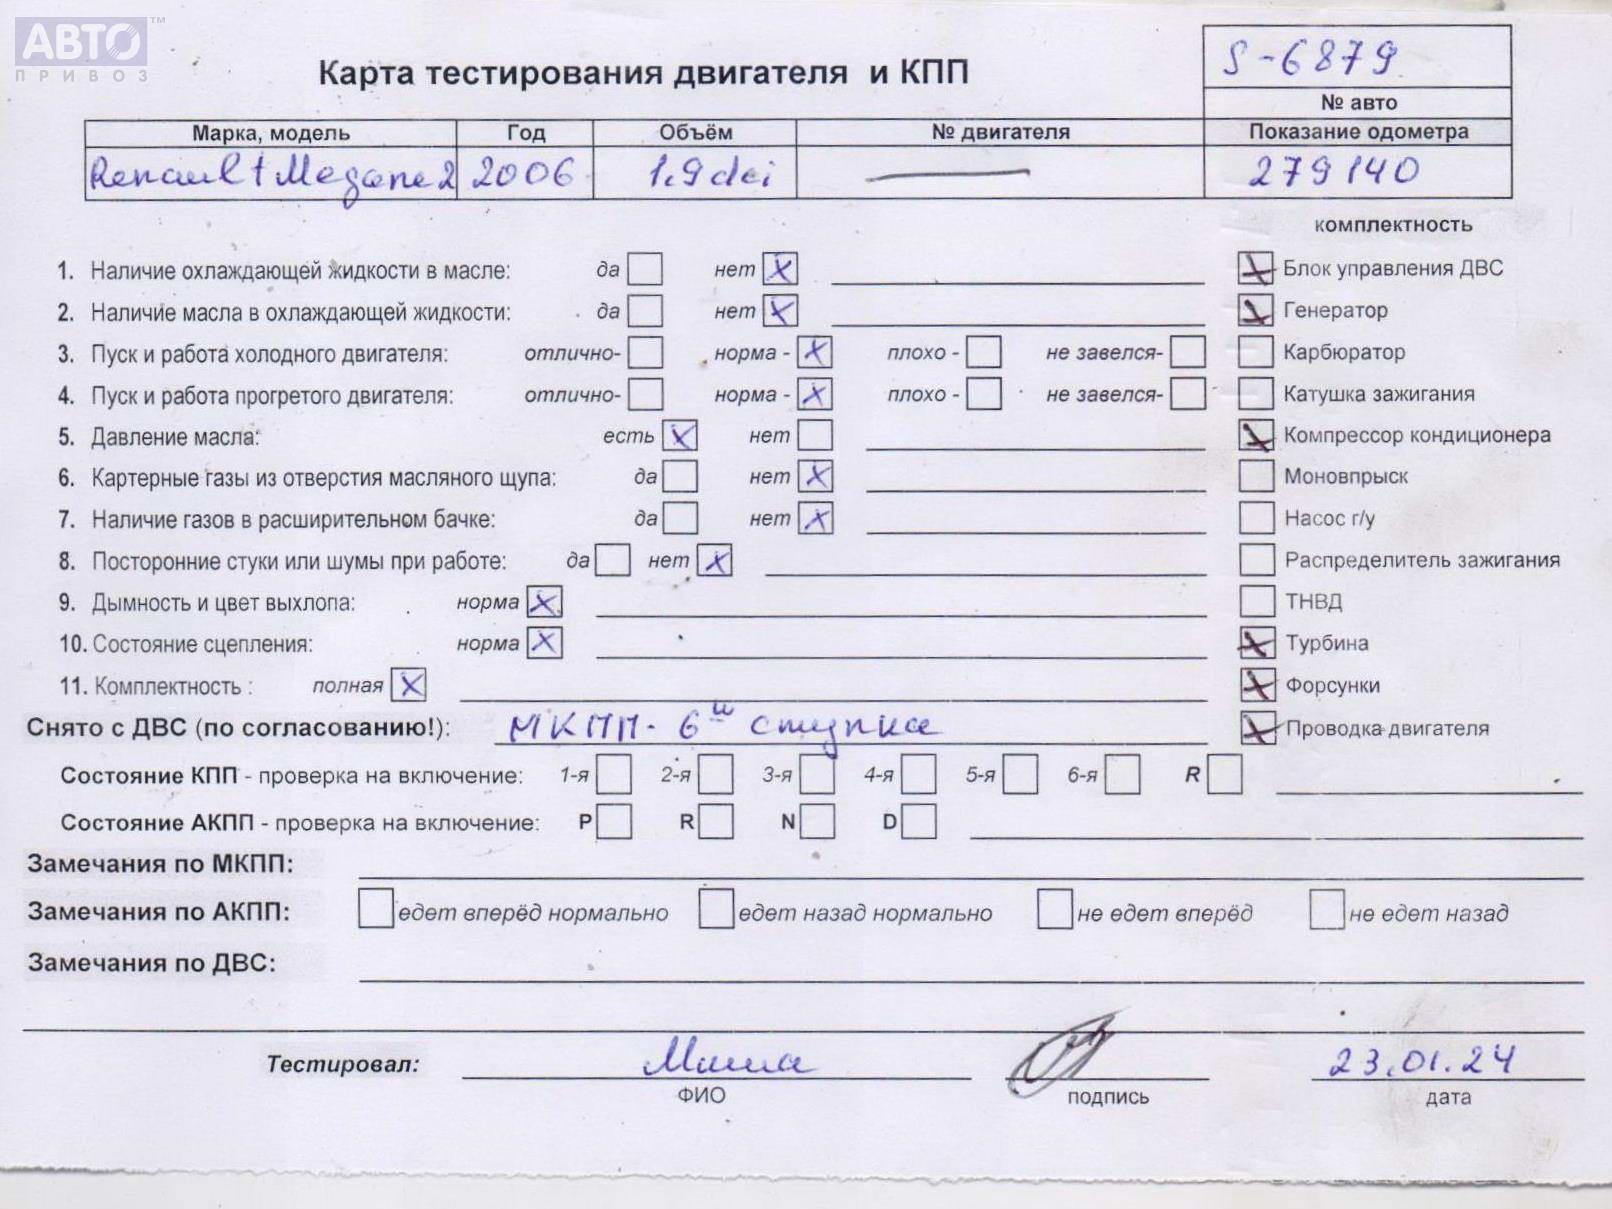 АВТО™
ПРИВОЗ
Карта тестирования двигателя и КПП
S-6879
№ авто
Марка, модель Год Объём № двигателя Показание одометра
Renault Megane 2 2006 1.9 dci — 279140
комплектность
1. Наличие охлаждающей жидкости в масле: да нет X X Блок управления ДВС
2. Наличие масла в охлаждающей жидкости: да нет X X Генератор
3. Пуск и работа холодного двигателя: отлично- норма - X плохо - не завелся- Карбюратор
4. Пуск и работа прогретого двигателя: отлично- норма - X плохо - не завелся- Катушка зажигания
5. Давление масла: есть X нет X Компрессор кондиционера
6. Картерные газы из отверстия масляного щупа: да нет X Моновпрыск
7. Наличие газов в расширительном бачке: да нет X Насос г/у
8. Посторонние стуки или шумы при работе: да нет X Распределитель зажигания
9. Дымность и цвет выхлопа: норма X ТНВД
10. Состояние сцепления: норма X X Турбина
11. Комплектность : полная X X Форсунки
Снято с ДВС (по согласованию!): МКПП- 6 и ступка X Проводка двигателя
Состояние КПП - проверка на включение: 1-я 2-я 3-я 4-я 5-я 6-я R
Состояние АКПП - проверка на включение: P R N D
Замечания по МКПП:
Замечания по АКПП: едет вперёд нормально едет назад нормально не едет вперёд не едет назад
Замечания по ДВС:
Тестировал: Миша 23.01.24
ФИО подпись дата